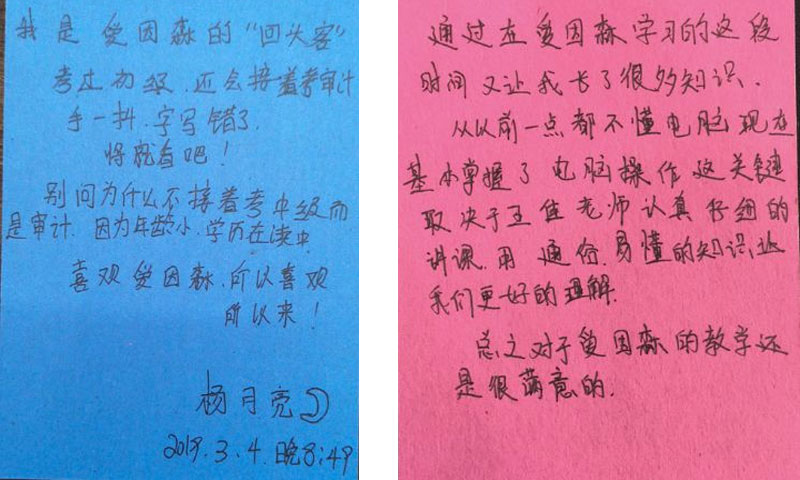 我是爱因森的“回头客”
考过初级.还会接着考审计
手一抖.字写错了.
将就看吧！
别问为什么不接着考中级而
是审计.因为年龄小.学历在读中
喜欢爱因森.所以喜欢
所以来！
杨月亮
2019.3.4.晚8:49
通过在爱因森学习的这段
时间又让我长了很多知识.
从以前一点都不懂电脑现在
基本掌握了电脑操作这关键
取决于王佳老师认真仔细的
讲课.用通俗.易懂的知识.让
我们更好的理解.
总之对于爱因森的教学还
是很满意的.